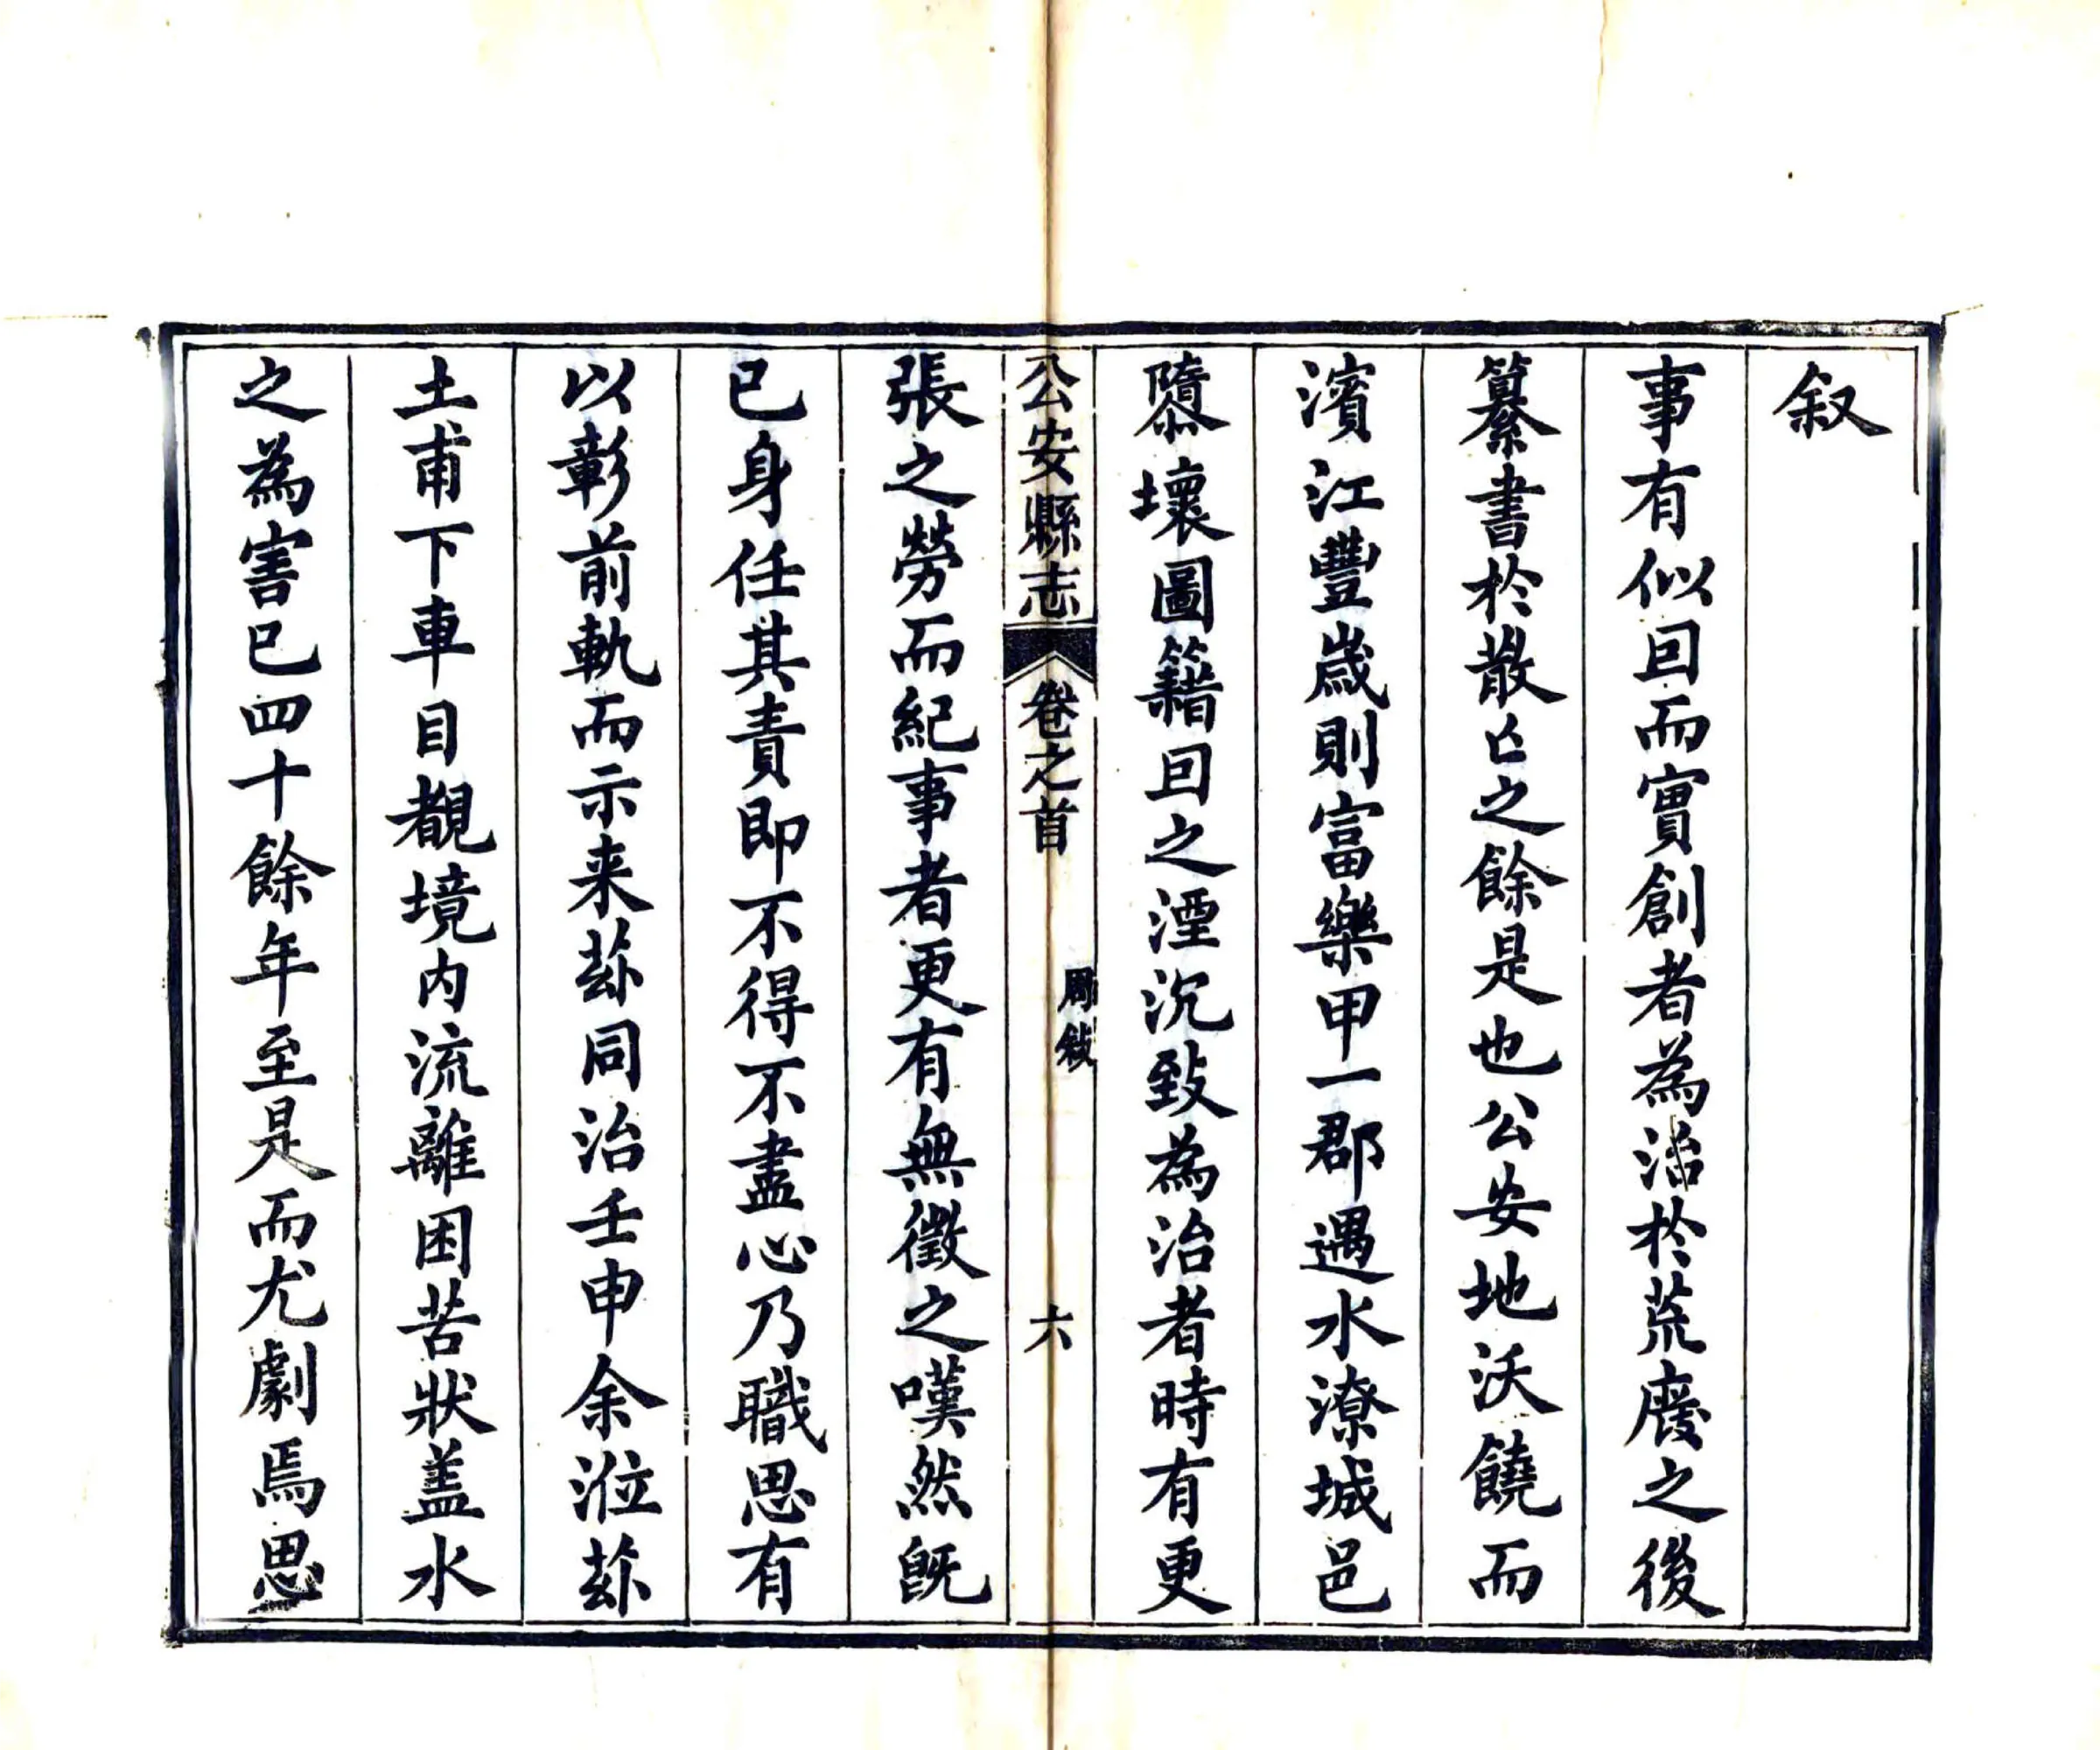 叙
事有似因而實創者為治於荒廢之後
纂書於散亡之餘是也公安地沃饒而
濱江豐歲則富樂甲一郡遇水潦城邑
隳壞圖籍因之湮沉致為治者時有更
公安縣志 卷之首 周叙 六
張之勞而紀事者更有無徵之嘆然既
已身任其責即不得不盡心乃職思有
以彰前軌而示来茲同治壬申余涖茲
土甫下車目覩境内流離困苦狀盖水
之為害已四十餘年至是而尤劇焉思